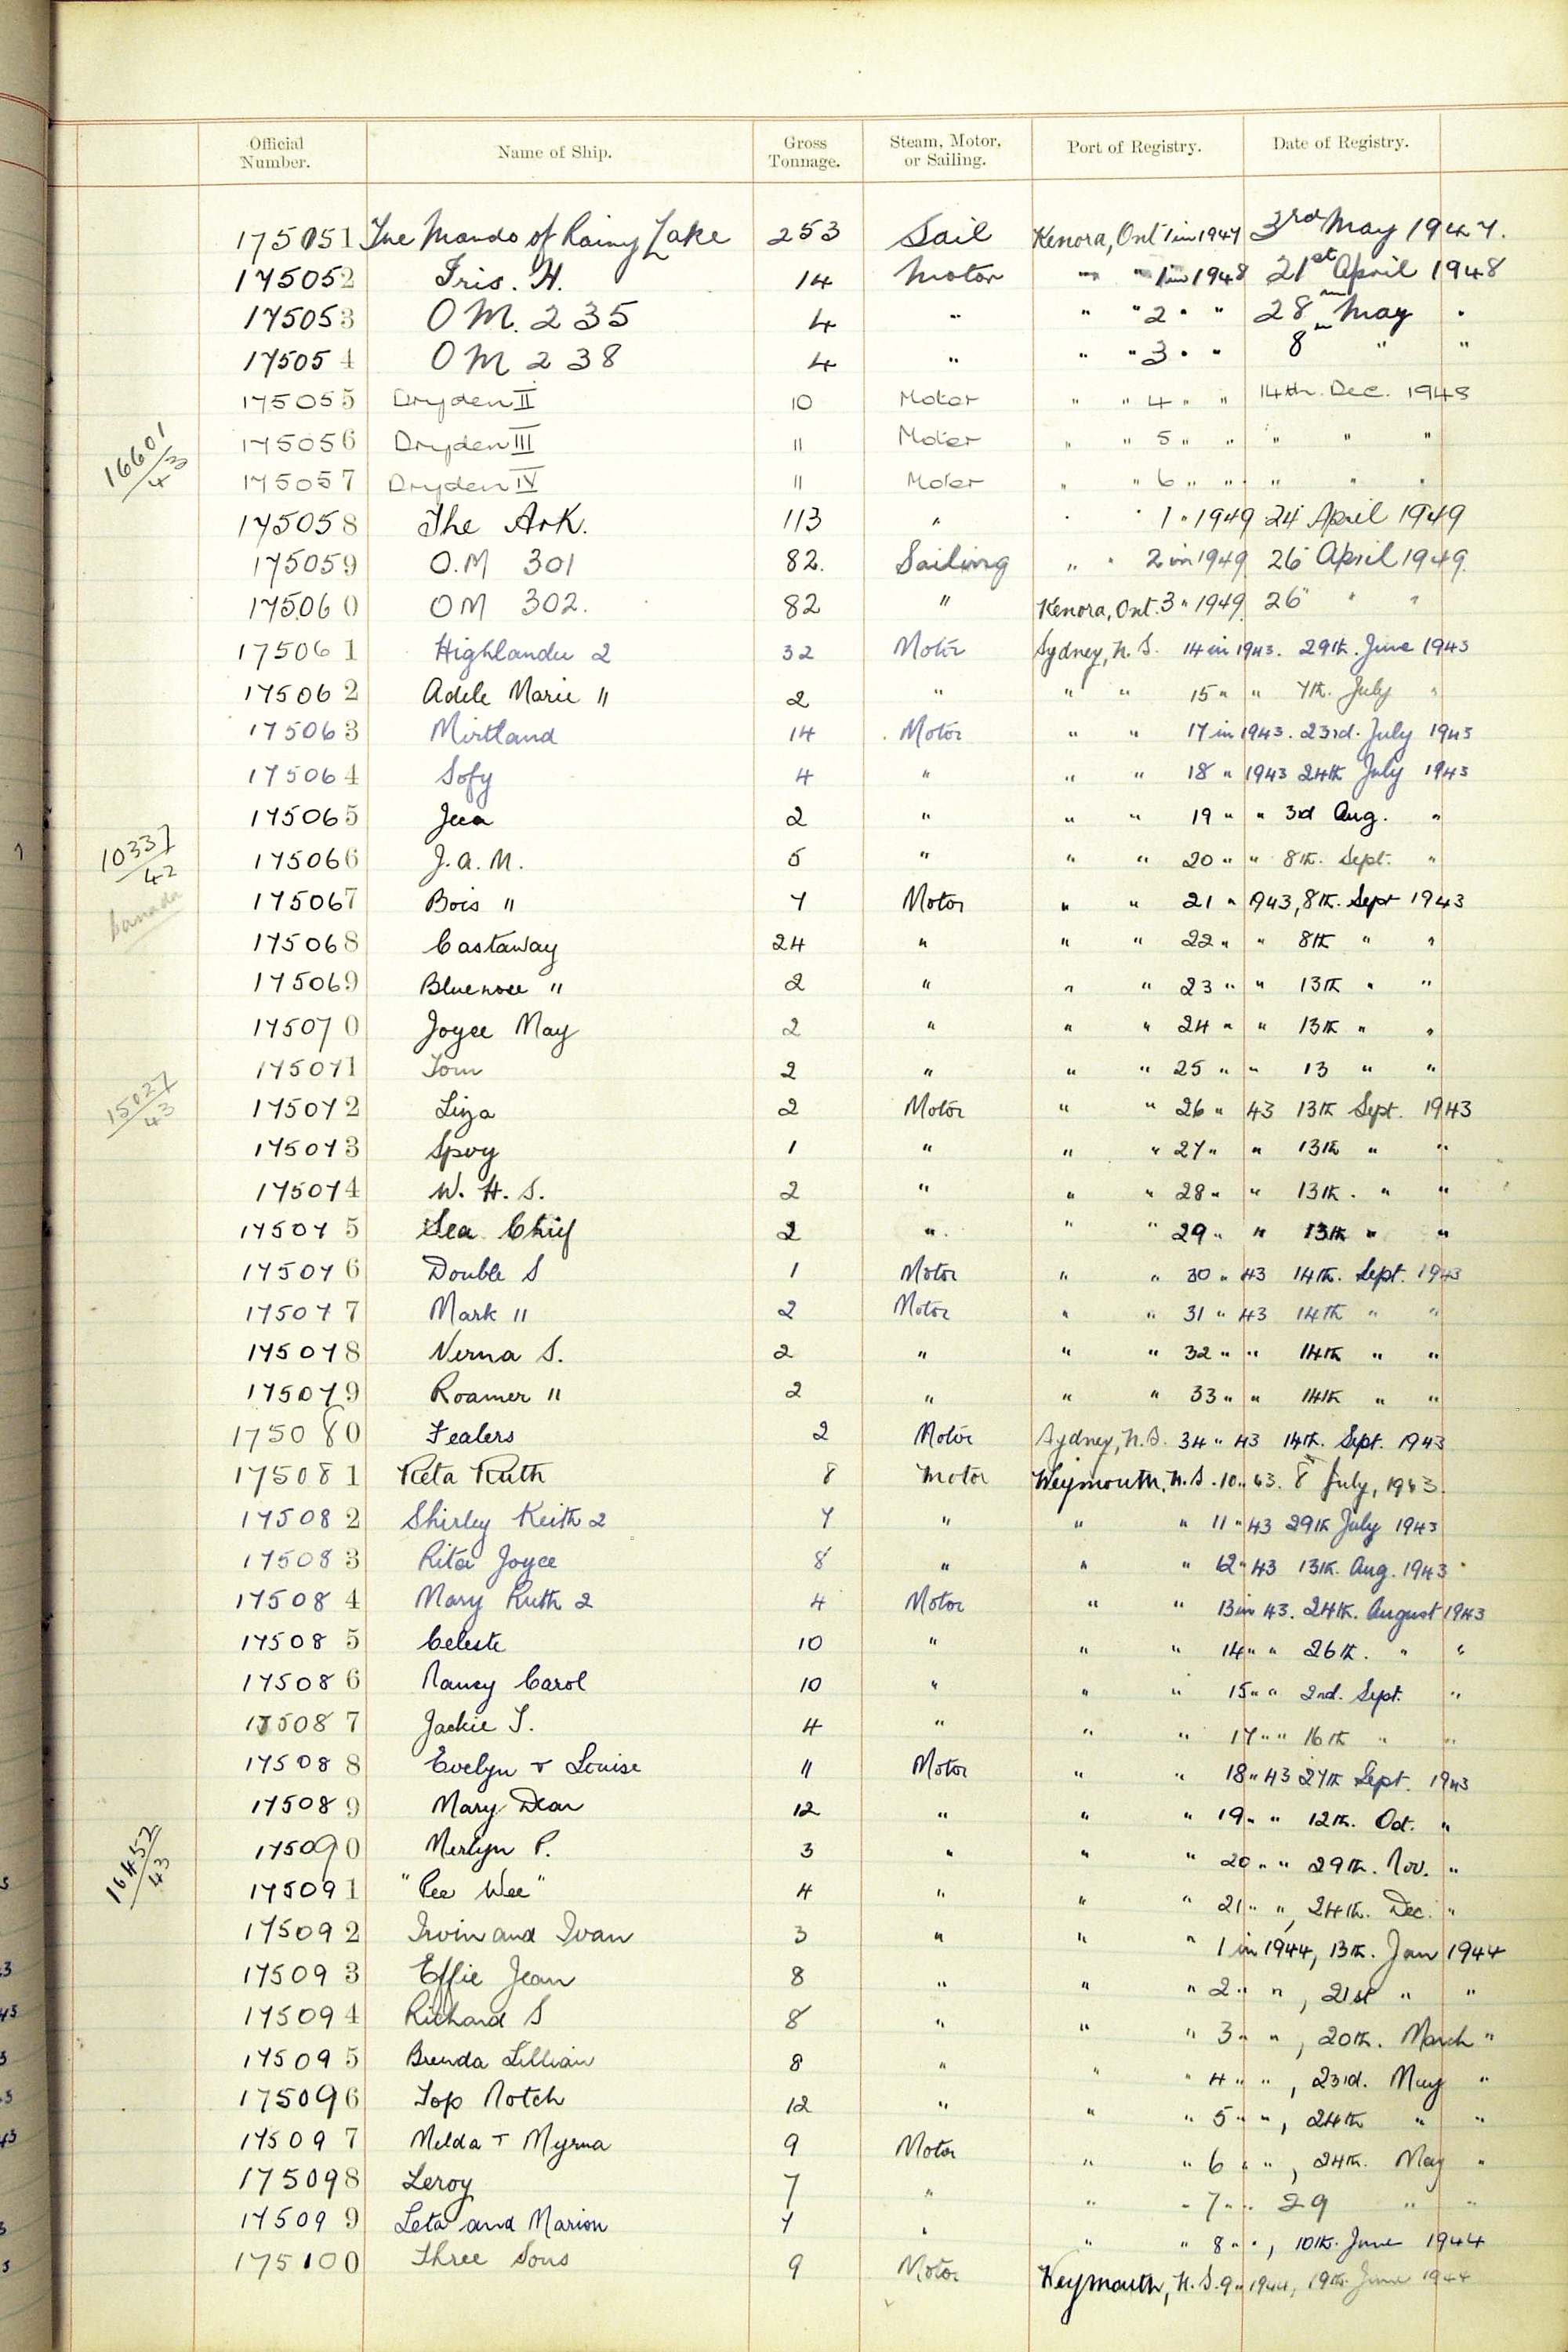 Official Number. Name of Ship. Gross Tonnage. Steam, Motor, or Sailing. Port of Registry. Date of Registry.
175051 The Mando of Rainy Lake 253 Sail Kenora, Ont 1 in 1947 3rd May 1947.
175052 Iris. H. 14 Motor " " 1 in 1948 21st April 1948
175053 O M. 235 4 " " " 2 " " 28th May "
175054 O M 238 4 " " " 3 " " 8th " "
175055 Dryden II 10 Motor " " 4 " " 14th. Dec. 1948
16601/43
175056 Dryden III 11 Moter " " 5 " " " " "
175057 Dryden IV 11 Moter " " 6 " " " " "
175058 The Ark. 113 " " " 1 " 1949 24 April 1949
175059 O.M 301 82. Sailing " " 2 in 1949 26 April 1949.
175060 OM 302. 82 " Kenora, Ont. 3 " 1949 26 " "
175061 Highlander 2 32 Motor Sydney, N. S. 14 in 1943. 29th. June 1943
175062 Adele Marie " 2 " " " 15 " " 7th. July "
175063 Mirtland 14 Motor " " 17 in 1943. 23rd. July 1943
175064 Sofy 4 " " " 18 " 1943 24th July 1943
175065 2 " " " 19 " " 3rd Aug. "
10337/42
175066 J. A. M. 5 " " " 20 " " 8th. Sept. "
Canada
175067 Bois " 7 Motor " " 21 " 1943, 8th. Sept 1943
175068 Castaway 24 " " " 22 " " 8th " "
175069 Bluenose " 2 " " " 23 " " 13th " "
175070 Joyce May 2 " " " 24 " " 13th " "
175071 Tom 2 " " " 25 " " 13 " "
15027/43
175072 Liza 2 Motor " " 26 " 43 13th Sept. 1943
175073 1 " " " 27 " " 13th " "
175074 W. H. S. 2 " " " 28 " " 13th. " "
175075 Sea Chief 2 " " " 29 " " 13th " "
175076 Double S 1 Motor " " 30 " 43 14th. Sept. 1943
175077 Mark " 2 Motor " " 31 " 43 14th " "
175078 Verna S. 2 " " " 32 " " 14th " "
175079 Roamer " 2 " " " 33 " " 14th " "
175080 Fealers 2 Motor Sydney, N.S. 34 " 43 14th. Sept. 1943
175081 Reta Ruth 8 Motor Weymouth, N. S. 10 " 43. 8th July, 1943.
175082 Shirley Keith 2 7 " " " 11 " 43 29th July 1943
175083 Rita Joyce 8 " " " 12 " 43 13th. Aug. 1943
175084 Mary Ruth 2 4 Motor " " 13 in 43. 24th. August 1943
175085 Celeste 10 " " " 14 " " 26th. " "
175086 Nancy Carol 10 " " " 15 " " 2nd. Sept. "
175087 Jackie T. 4 " " " 17 " " 16th " "
175088 Evelyn + Louise 11 Motor " " 18 " 43 27th Sept. 1943
175089 Mary Dean 12 " " " 19 " " 12th. Oct. "
16452/43
175090 Merlyn P. 3 " " " 20 " " 29th. Nov. "
175091 "Pee Wee" 4 " " " 21 " ", 24th. Dec. "
175092 Irvin and Ivan 3 " " " 1 in 1944, 13th. Jan 1944
175093 Effie Jean 8 " " " 2 " ", 21st " "
175094 Richard S 8 " " " 3 " ", 20th. March "
175095 Brenda Lillian 8 " " " 4 " ", 23rd. May "
175096 Top Notch 12 " " " 5 " ", 24th " "
175097 Melda + Myrna 9 Motor " " 6 " ", 24th. May "
175098 Leroy 7 " " " 7 " " 29 " "
175099 Leta and Marion 7 " " " 8 " ", 10th. June 1944
175100 Three Sons 9 Motor Weymouth, N. S. 9 " 1944, 19th. June 1944